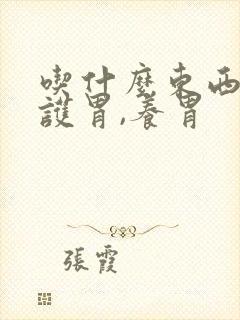 喫什麼東西
護胃,養胃
張霞